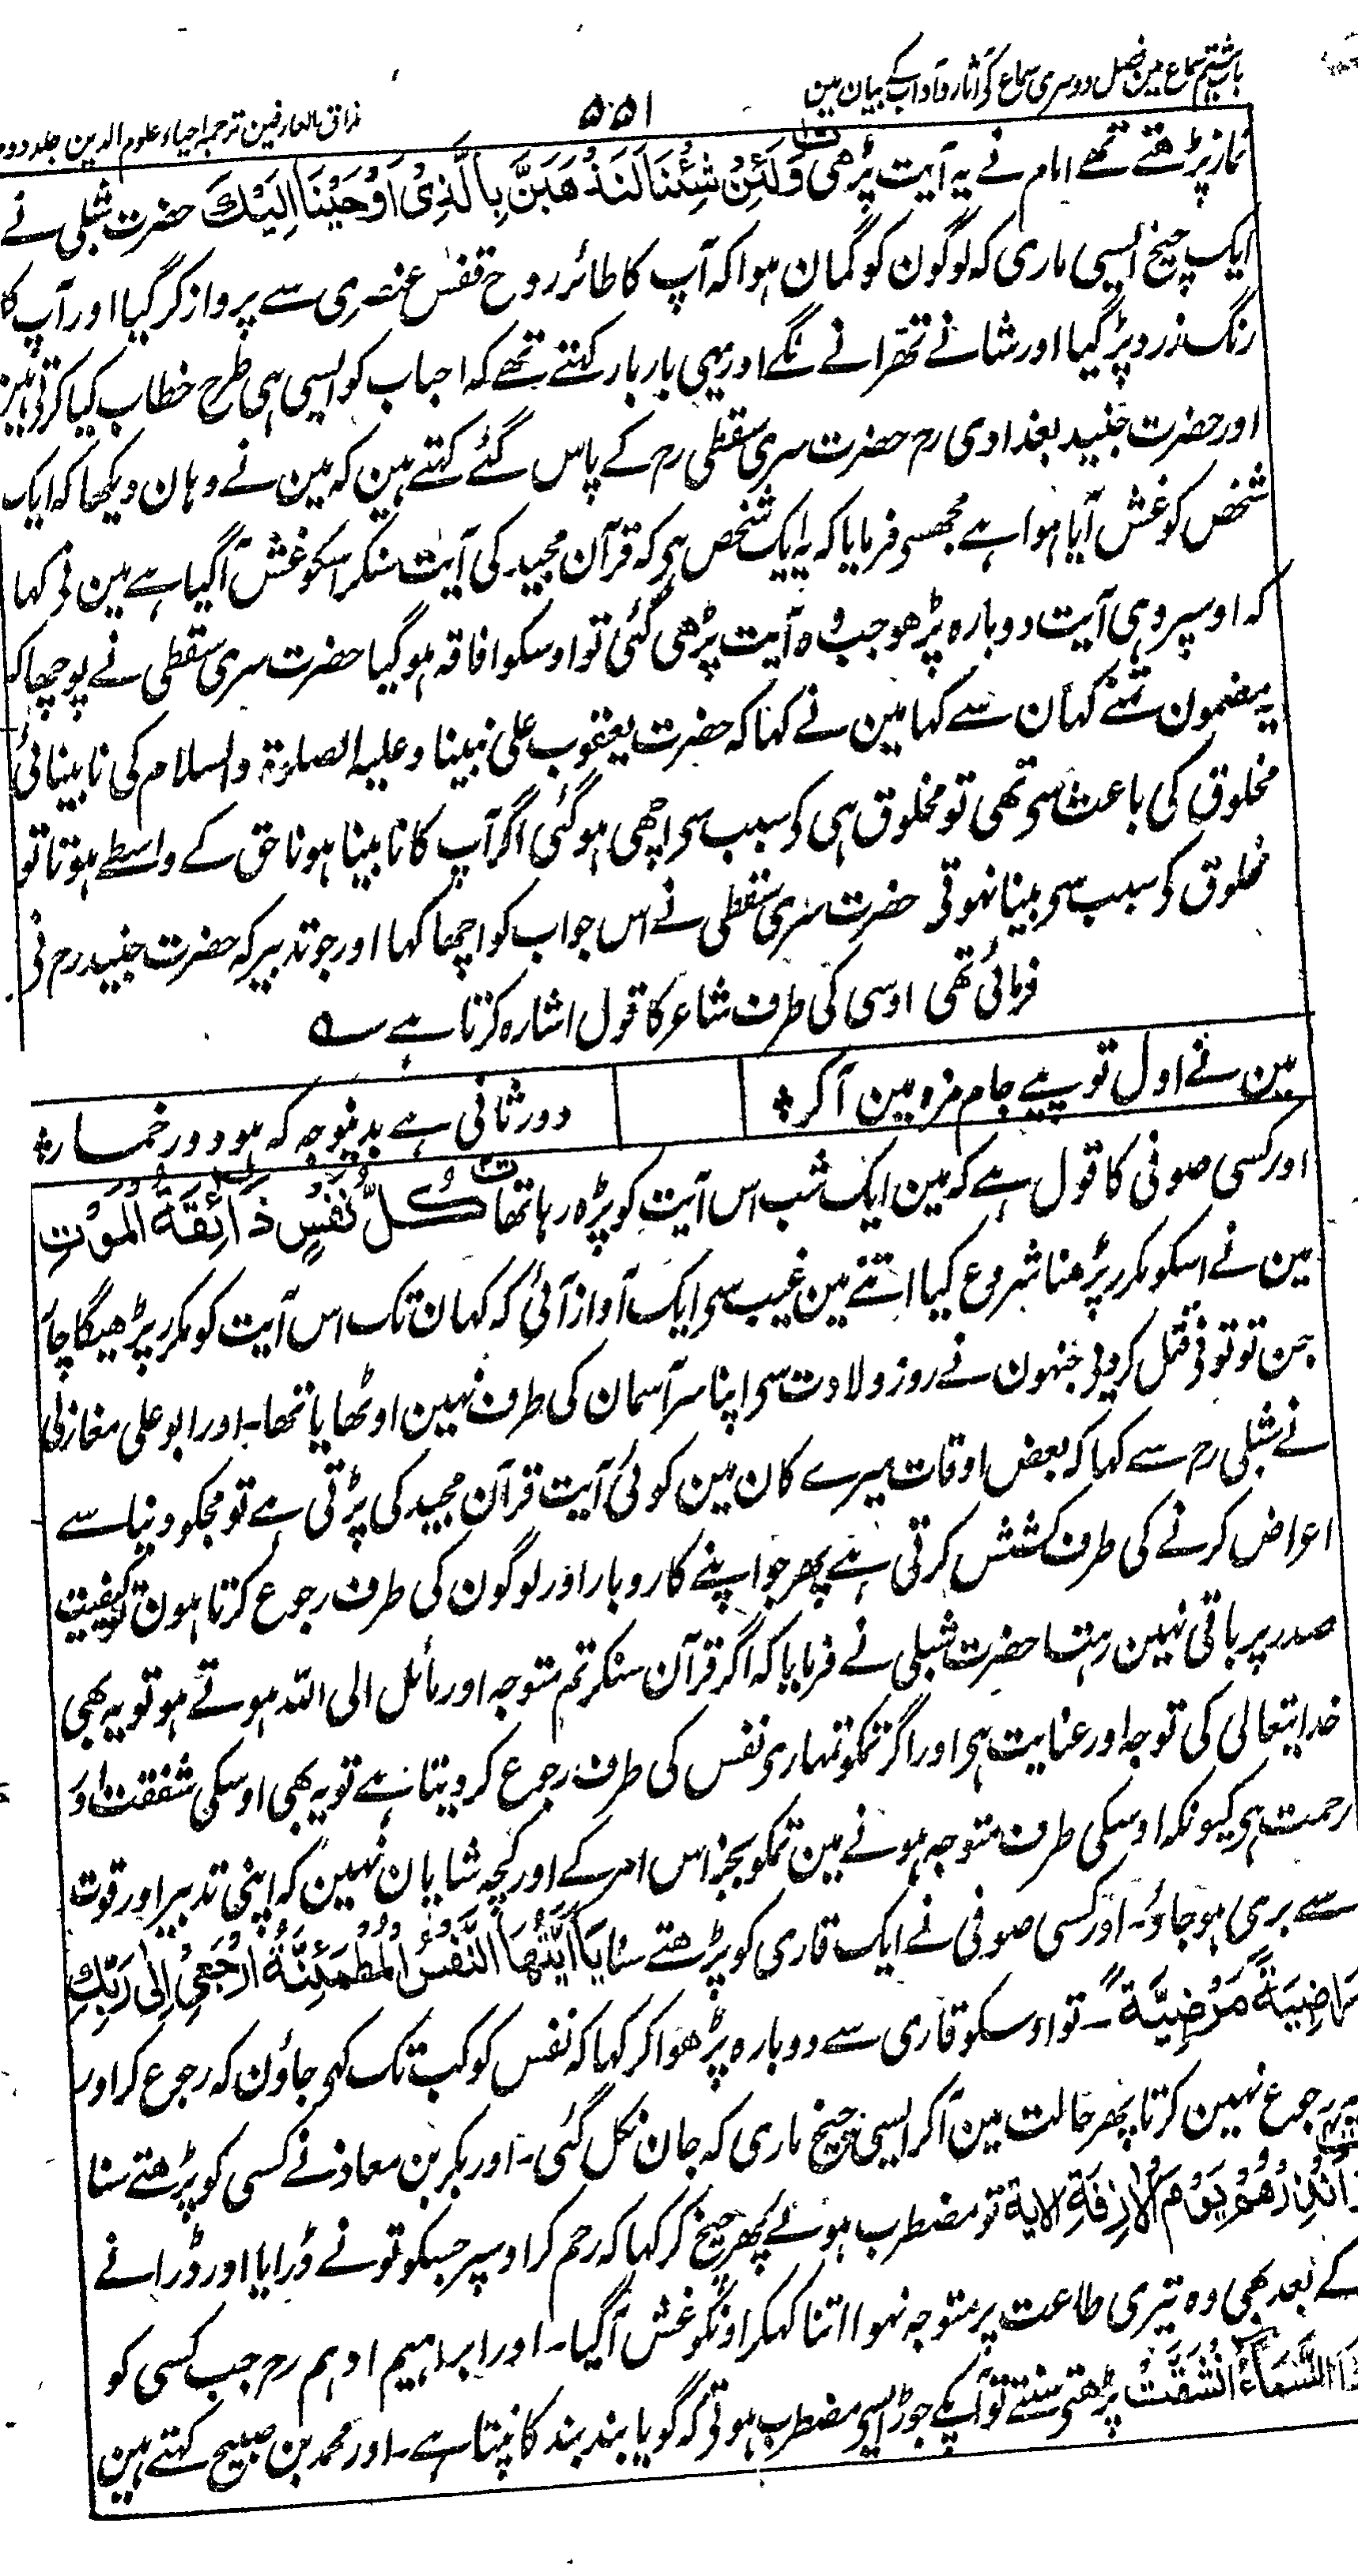 باب ہشتم سماع مین فصل دوسری سماع کے آثار و آداب کے بیان مین
۵۵۱
مذاق العارفین ترجمہ احیاء علوم الدین جلد دوم
نماز پڑھتے تھے امام نے یہ آیت پڑھی وَلَئِنْ شِئْنَا لَنَذْهَبَنَّ بِالَّذِیْ اَوْحَیْنَا اِلَیْكَ حضرت شبلی نے
ایک چیخ ایسی ماری کہ لوگون کو گمان ہوا کہ آپ کا طائر روح قفس عنصری سے پرواز کر گیا اور آپ کا
رنگ زرد پڑ گیا اور شانے تھرانے لگے اور یہی بار بار کہتے تھے کہ احباب کو ایسی ہی طرح خطاب کیا کرتے ہین
اور حضرت جنید بغدادی رح حضرت سری سقطی رح کے پاس گئے کہتے ہین کہ مین نے وہان دیکھا کہ ایک
شخص کو غش آیا ہوا ہے مجھسے فرمایا کہ یہ ایک شخص ہی کہ قرآن مجید کی آیت سنکر اسکو غش آگیا ہے مین نے کہا
کہ اوسپر وہی آیت دوبارہ پڑھو جب وہ آیت پڑھی گئی تو اوسکو افاقہ ہوگیا حضرت سری سقطی نے پوچھا کہ
یہ مضمون تمنے کہان سے کہا مین نے کہا کہ حضرت یعقوب علی نبینا وعلیہ الصلوۃ والسلام کی نابینائی
مخلوق کی باعث سے تھی تو مخلوق ہی کے سبب سے اچھی ہوگئی اگر آپ کا نابینا ہونا حق کے واسطے ہوتا تو
مخلوق کے سبب سے بینا نہوتے حضرت سری سقطی نے اس جواب کو اچھا کہا اور جو تدبیر کہ حضرت جنید رح نے
فرمائی تھی اوسی کی طرف شاعر کا قول اشارہ کرتا ہے ؎
مین نے اول تو پیے جام مزہ مین آکر ٭ دور ثانی ہے بدینوجہ کہ ہو دور خمار ٭
اور کسی صوفی کا قول ہے کہ مین ایک شب اس آیت کو پڑہ رہا تھا كُلُّ نَفْسٍ ذَائِقَةُ الْمَوْتِ
مین نے اسکو مکرر پڑھنا شروع کیا اتنے مین غیب سے ایک آواز آئی کہ کہان تک اس آیت کو مکرر پڑھیگا چار
جن تو تونے قتل کردیے جنہون نے روز ولادت سے اپنا سر آسمان کی طرف نہین اوٹھایا تھا۔ اور ابو علی مغازلی
نے شبلی رح سے کہا کہ بعض اوقات میرے کان مین کوئی آیت قرآن مجید کی پڑتی ہے تو مجکو دنیا سے
اعراض کرنے کی طرف کشش کرتی ہے پھر جو اپنے کاروبار اور لوگون کی طرف رجوع کرتا ہون تو کیفیت
صدر پر باقی نہین رہتا حضرت شبلی نے فرمایا کہ اگر قرآن سنکر تم متوجہ اور مائل الی اللہ ہوتے ہو تو یہ بھی
خدایتعالی کی توجہ اور عنایت ہی اور اگر تمکو تمہارے نفس کی طرف رجوع کر دیتا ہے تو یہ بھی اوسکی شفقت اور
رحمت ہی کیونکہ اوسکی طرف متوجہ ہونے مین تمکو بجز اس امر کے اور کچہ شایان نہین کہ اپنی تدبیر اور قوت
سے بری ہوجاؤ۔ اور کسی صوفی نے ایک قاری کو پڑھتے سنا یَا اَیَّتُهَا النَّفْسُ الْمُطْمَئِنَّةُ ارْجِعِیْ اِلٰی رَبِّكِ
رَاضِیَةً مَرْضِیَّةً۔ تو اوسکو قاری سے دوبارہ پڑھوا کر کہا کہ نفس کو کب تک کہے جاؤن کہ رجوع کر اور
یہ رجوع نہین کرتا پھر حالت مین آکر ایسی چیخ ماری کہ جان نکل گئی۔ اور بکر بن معاذ نے کسی کو پڑھتے سنا
وَاَنْذِرْهُمْ یَوْمَ الْاٰزِفَةِ الآیۃ تو مضطرب ہوئے پھر چیخ کر کہا کہ رحم کر اوسپر جسکو تو نے ڈرایا اور ڈرانے
کے بعد بھی وہ تیری طاعت پر متوجہ نہوا اتنا کہکر اونکو غش آگیا۔ اور ابراہیم ادہم رح جب کسی کو
اِذَا السَّمَاءُ انْشَقَّتْ پڑھتے سنتے تو آپکے جوڑ ایسے مضطرب ہوتے کہ گویا بند بند کانپتا ہے۔ اور محمد بن صبیح کہتے ہین